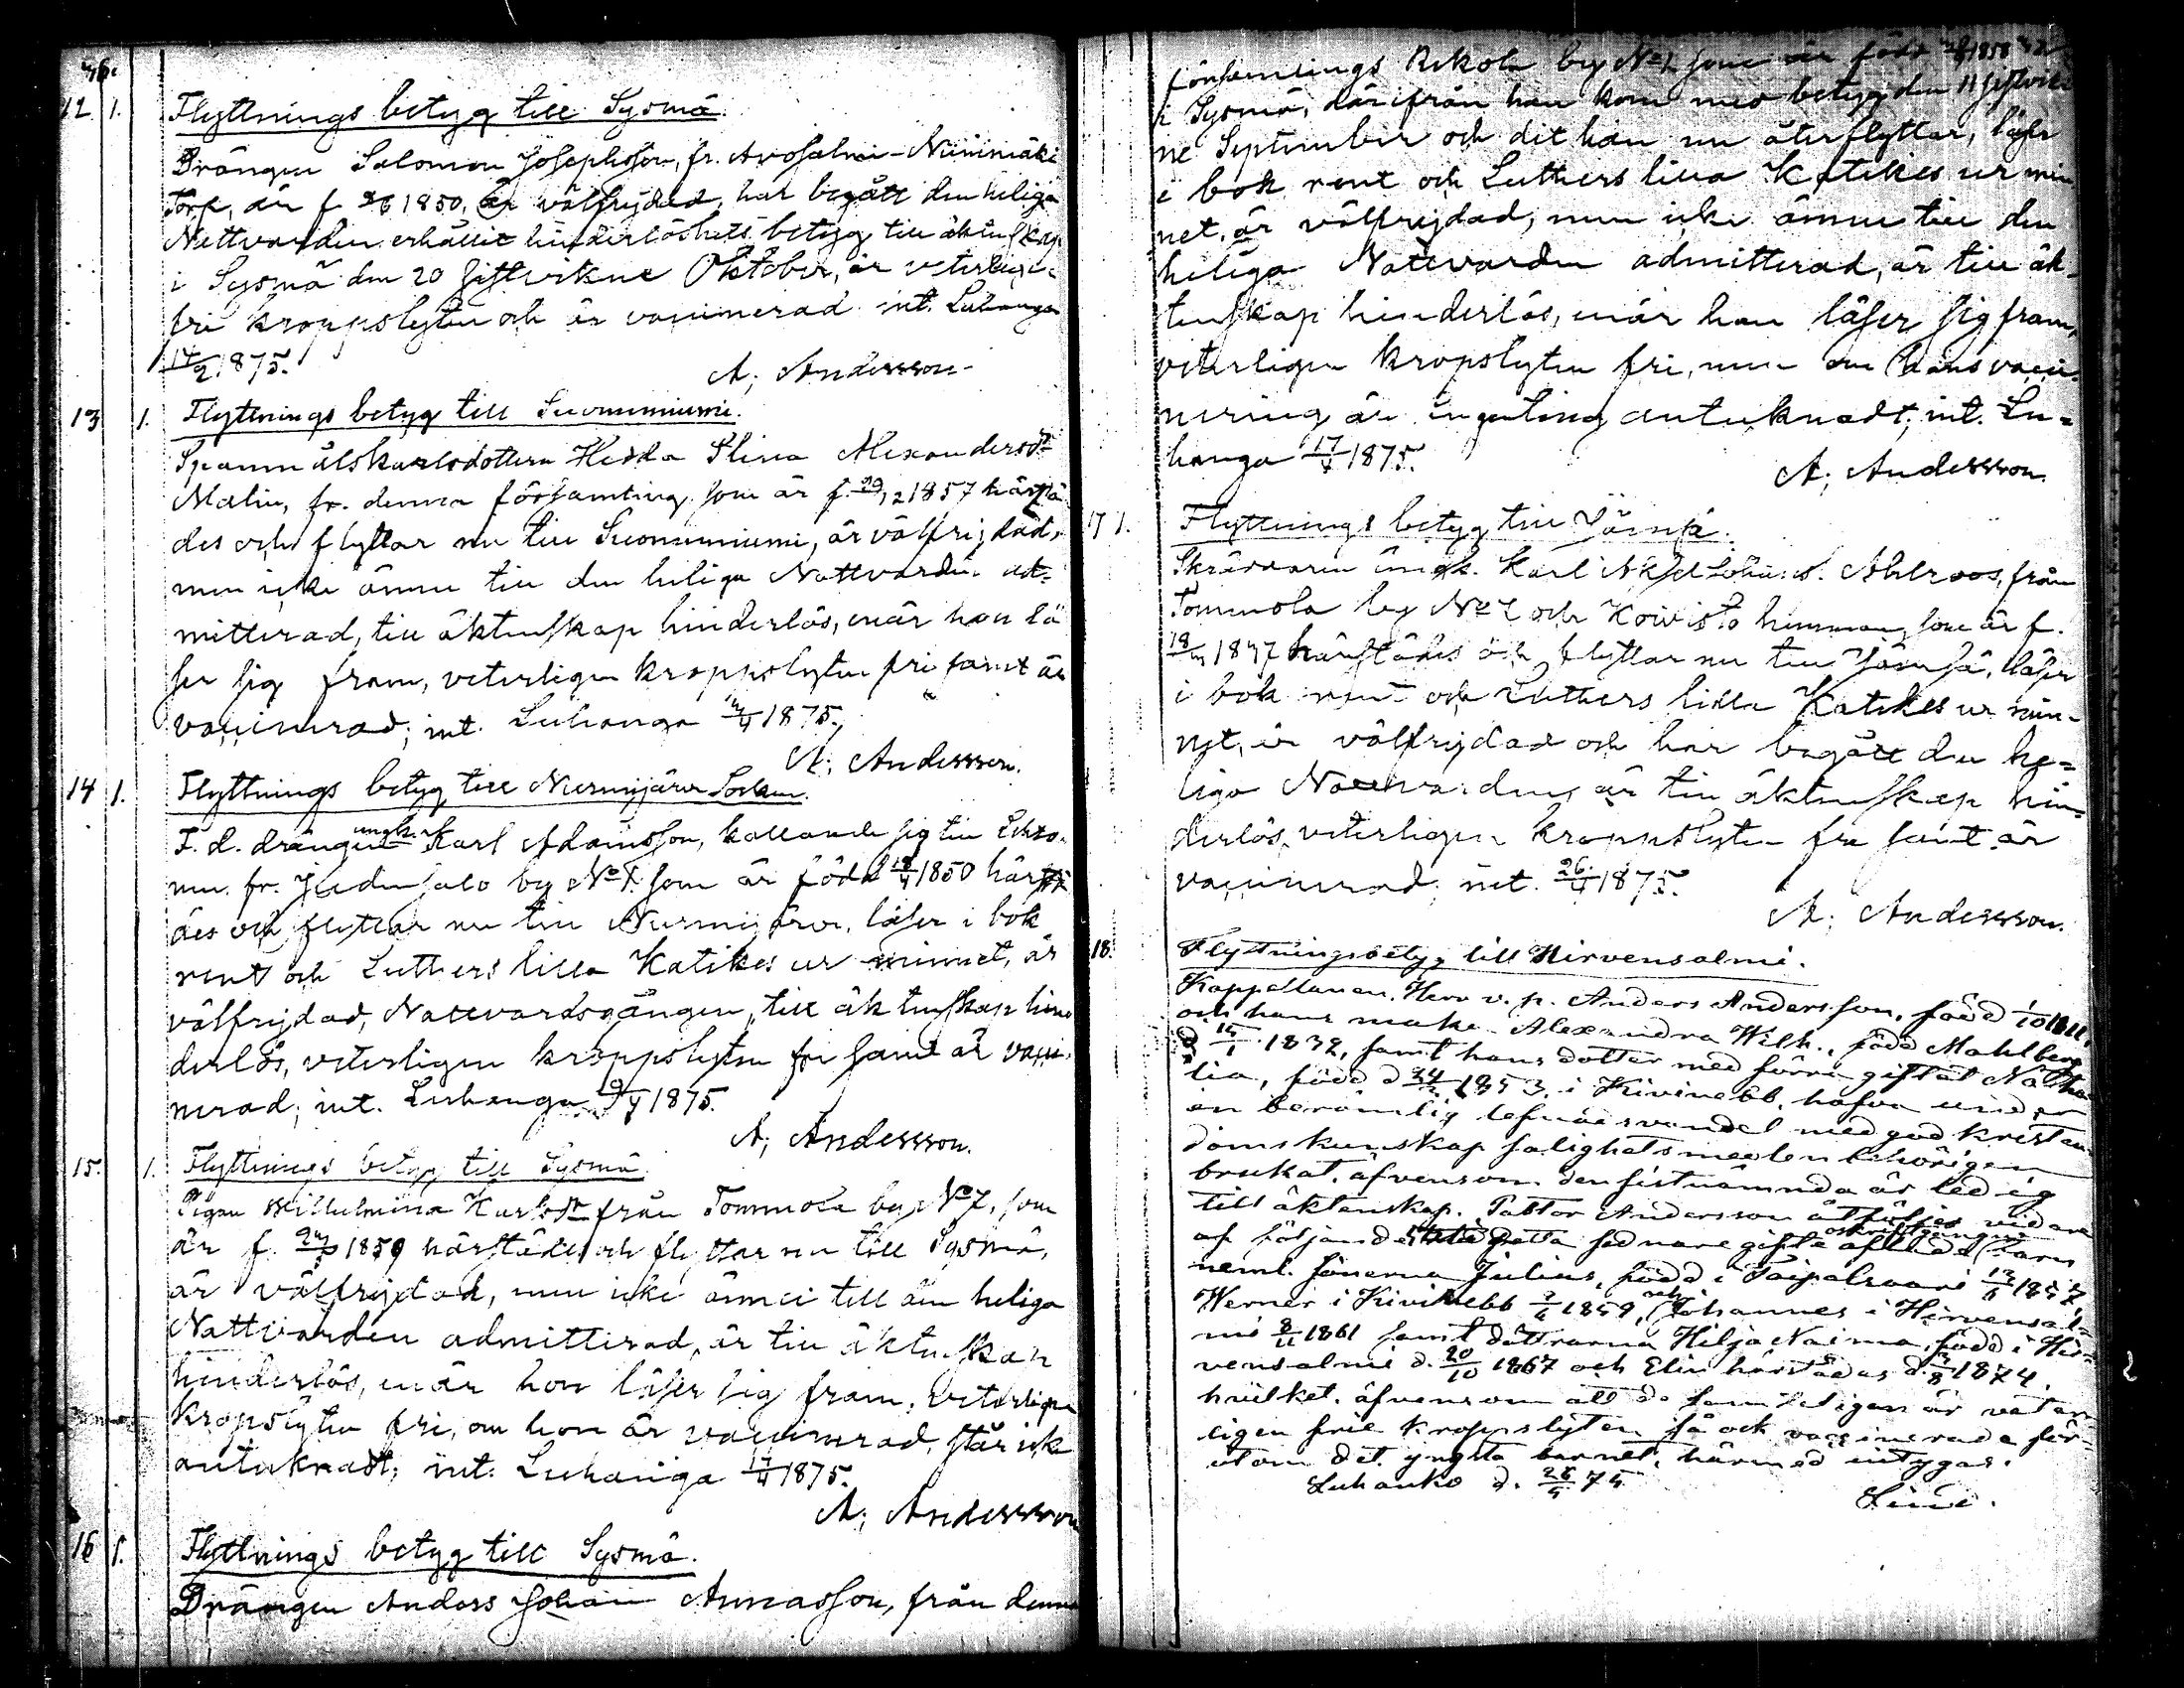 76.
12. 1. Flyttnings betyg till Sysmä.
Drängen Salomon Josephsson, fr. Avosalmi-Niinimäki
Torp, är f. 1850, är välfrejdad, har begått den heliga
Nattvarden erhållit hinderlöshets betyg till äktenskap
i Sysmä den 20 sistvikne Oktober, är veterligen
fri kroppslyten och är vaccinerad int. Luhanga
14/2 1875.
A; Andersson.
13. 1. Flyttnings betyg till Suoniemi.
Spannmålskarlsdottern Hedda Stina Alexandersdr
Malin, fr. denna församling som är f. 29/12 1857 härstä
des och flyttar nu till Suoniemi, är välfrejdad,
men icke ännu till den heliga Nattvarden ad-
mitterad, till äktenskap hinderlös, enär hon lä
ser sig fram, veterligen kroppslyten fri samt är
vaccinerad; int. Luhanga 1875.
A; Andersson.
14 1. Flyttnings betyg till Nurmijärvi Socken.
F. d. drängen ungk. Karl Adamsson, kallande sig till
fr. Judinsalo by No som är född 18/4 1850 härstä
des och flyttar nu till Nurmijärvi, läser i bok
rent och Luthers lilla Katikes ur minnet, är
välfrejdad, Nattvardsgången, till äktenskap hin
derlös, veterligen kroppslyten fri samt är vacci
nerad; int. Luhanga 9/4 1875.
A; Andersson.
15. 1. Flyttnings betyg till Sysmä
Pigan Wilhelmina Karlsdr från Tommola by No 7, som
är f. 1859 härstädes och flyttar nu till Sysmä,
är välfrejdad, men icke ännu till den heliga
Nattvarden admitterad, är till äktenskap
hinderlös, enär hon läser sig fram, veterligen
kropslyten fri, om hon är vaccinerad, står icke
antecknadt; int. Luhanga 17/4 1875.
A; Andersson
16 1. Flyttnings betyg till Sysmä.
Drängen Anders Johan Annasson, från denna
församlings Kekola by No 1 som är född 1858
i Sysmä, därifrån han kom med betyg den 11 sistvik
ne September och dit han nu återflyttar, läser
i bok rent och Luthers lilla Katikes ur min
net, är välfrejdad, men icke ännu till den
heliga Nattvarden admitterad, är till äk-
tenskap hinderlös, enär han läser sig fram,
veterligen kropslyten fri, men om hans vacci-
nering är ingenting antecknadt; int. Lu-
hanga 17/4 1875.
A; Andersson.
17 1. Flyttnings betyg till Jämsä.
Skräddaren ungk. Karl Axel Ahlroos, från
Tommola by No 7 och Koivisto hemman, som är f.
1847 härstädes och flyttar nu till Jämsä, läser
i bok rent och Luthers lilla Katikes ur min-
net, är välfrejdad och har begått den he-
liga Nattvarden, är till äktenskap hin
derlös, veterligen kroppslyten fri samt är
vaccinerad; int. 26/4 1875.
A; Andersson.
18. Flyttningsbetyg till Hirvensalmi.
Kappellanen, Herr v. p. Anders Andersson, född
och hans maka Alexandra Wilh., född Mahlberg
d 1832, samt hans dotter med förra giftet Natha
lia, född d 24 1853 i Kivinebb, hafva under
en berömlig lefnadsvandel med god kristen-
domskunskap salighetsmedlen behörigen
brukat, äfvensom den sistnämnda är ledig
till äktenskap. Pastor Andersson åtföljes vidare
af följande detta sednare gifte aflade oskriftgångna barn
neml. sönerna Julius, född i Taipalsaari 1857,
Werner i Kivinebb 1859, och Johannes i Hirvensal-
mi 8/11 1861 samt döttrarna Hilja Naima, född i Hir-
vensalmi d. 20/10 1867 och Elin härstädes d. 1874,
hvilket, äfvensom att de samteligen är veter
ligen frie kroppslyten så och vaccinerade för-
utom det yngsta barnet, härmed intygas.
Luhanko d. 75